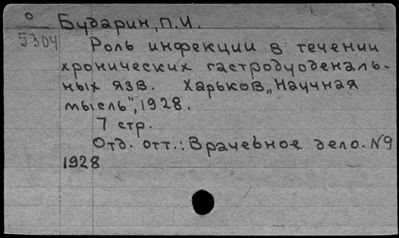 о Бударин, П.И.
5304
Роль инфекции в течении
хронических гастродуоденаль-
ных язв. Харьков, „Научная
мысль", 1928.
7 стр.
Отд. отт.: Врачебное дело. N9
1928